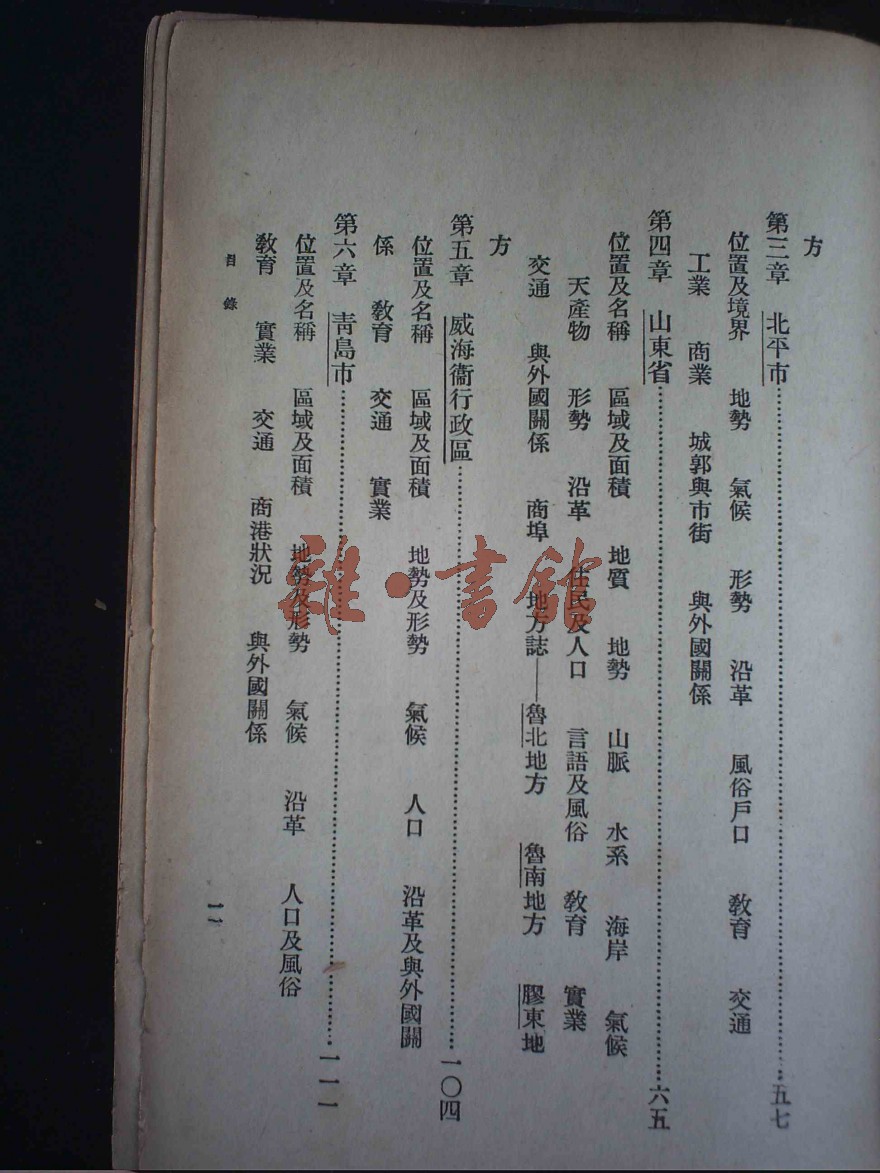 方
第三章 北平市……五七
位置及境界 地勢 氣候 形勢 沿革 風俗戶口 敎育 交通
工業 商業 城郭與市街 與外國關係
第四章 山東省……六五
位置及名稱 區域及面積 地質 地勢 山脈 水系 海岸 氣候
天產物 形勢 沿革 住民及人口 言語及風俗 敎育 實業
交通 與外國關係 商埠 地方誌——魯北地方 魯南地方 膠東地
方
第五章 威海衞行政區……一〇四
位置及名稱 區域及面積 地勢及形勢 氣候 人口 沿革及與外國關
係 敎育 交通 實業
第六章 靑島市……一一一
位置及名稱 區域及面積 地勢及形勢 氣候 沿革 人口及風俗
敎育 實業 交通 商港狀況 與外國關係
目錄
雜·書館